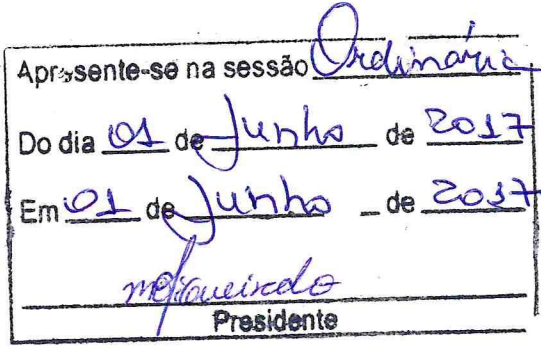 Apresente-se na sessão Ordinária
Do dia 01 de Junho de 2017
Em 01 de Junho de 2017
Presidente